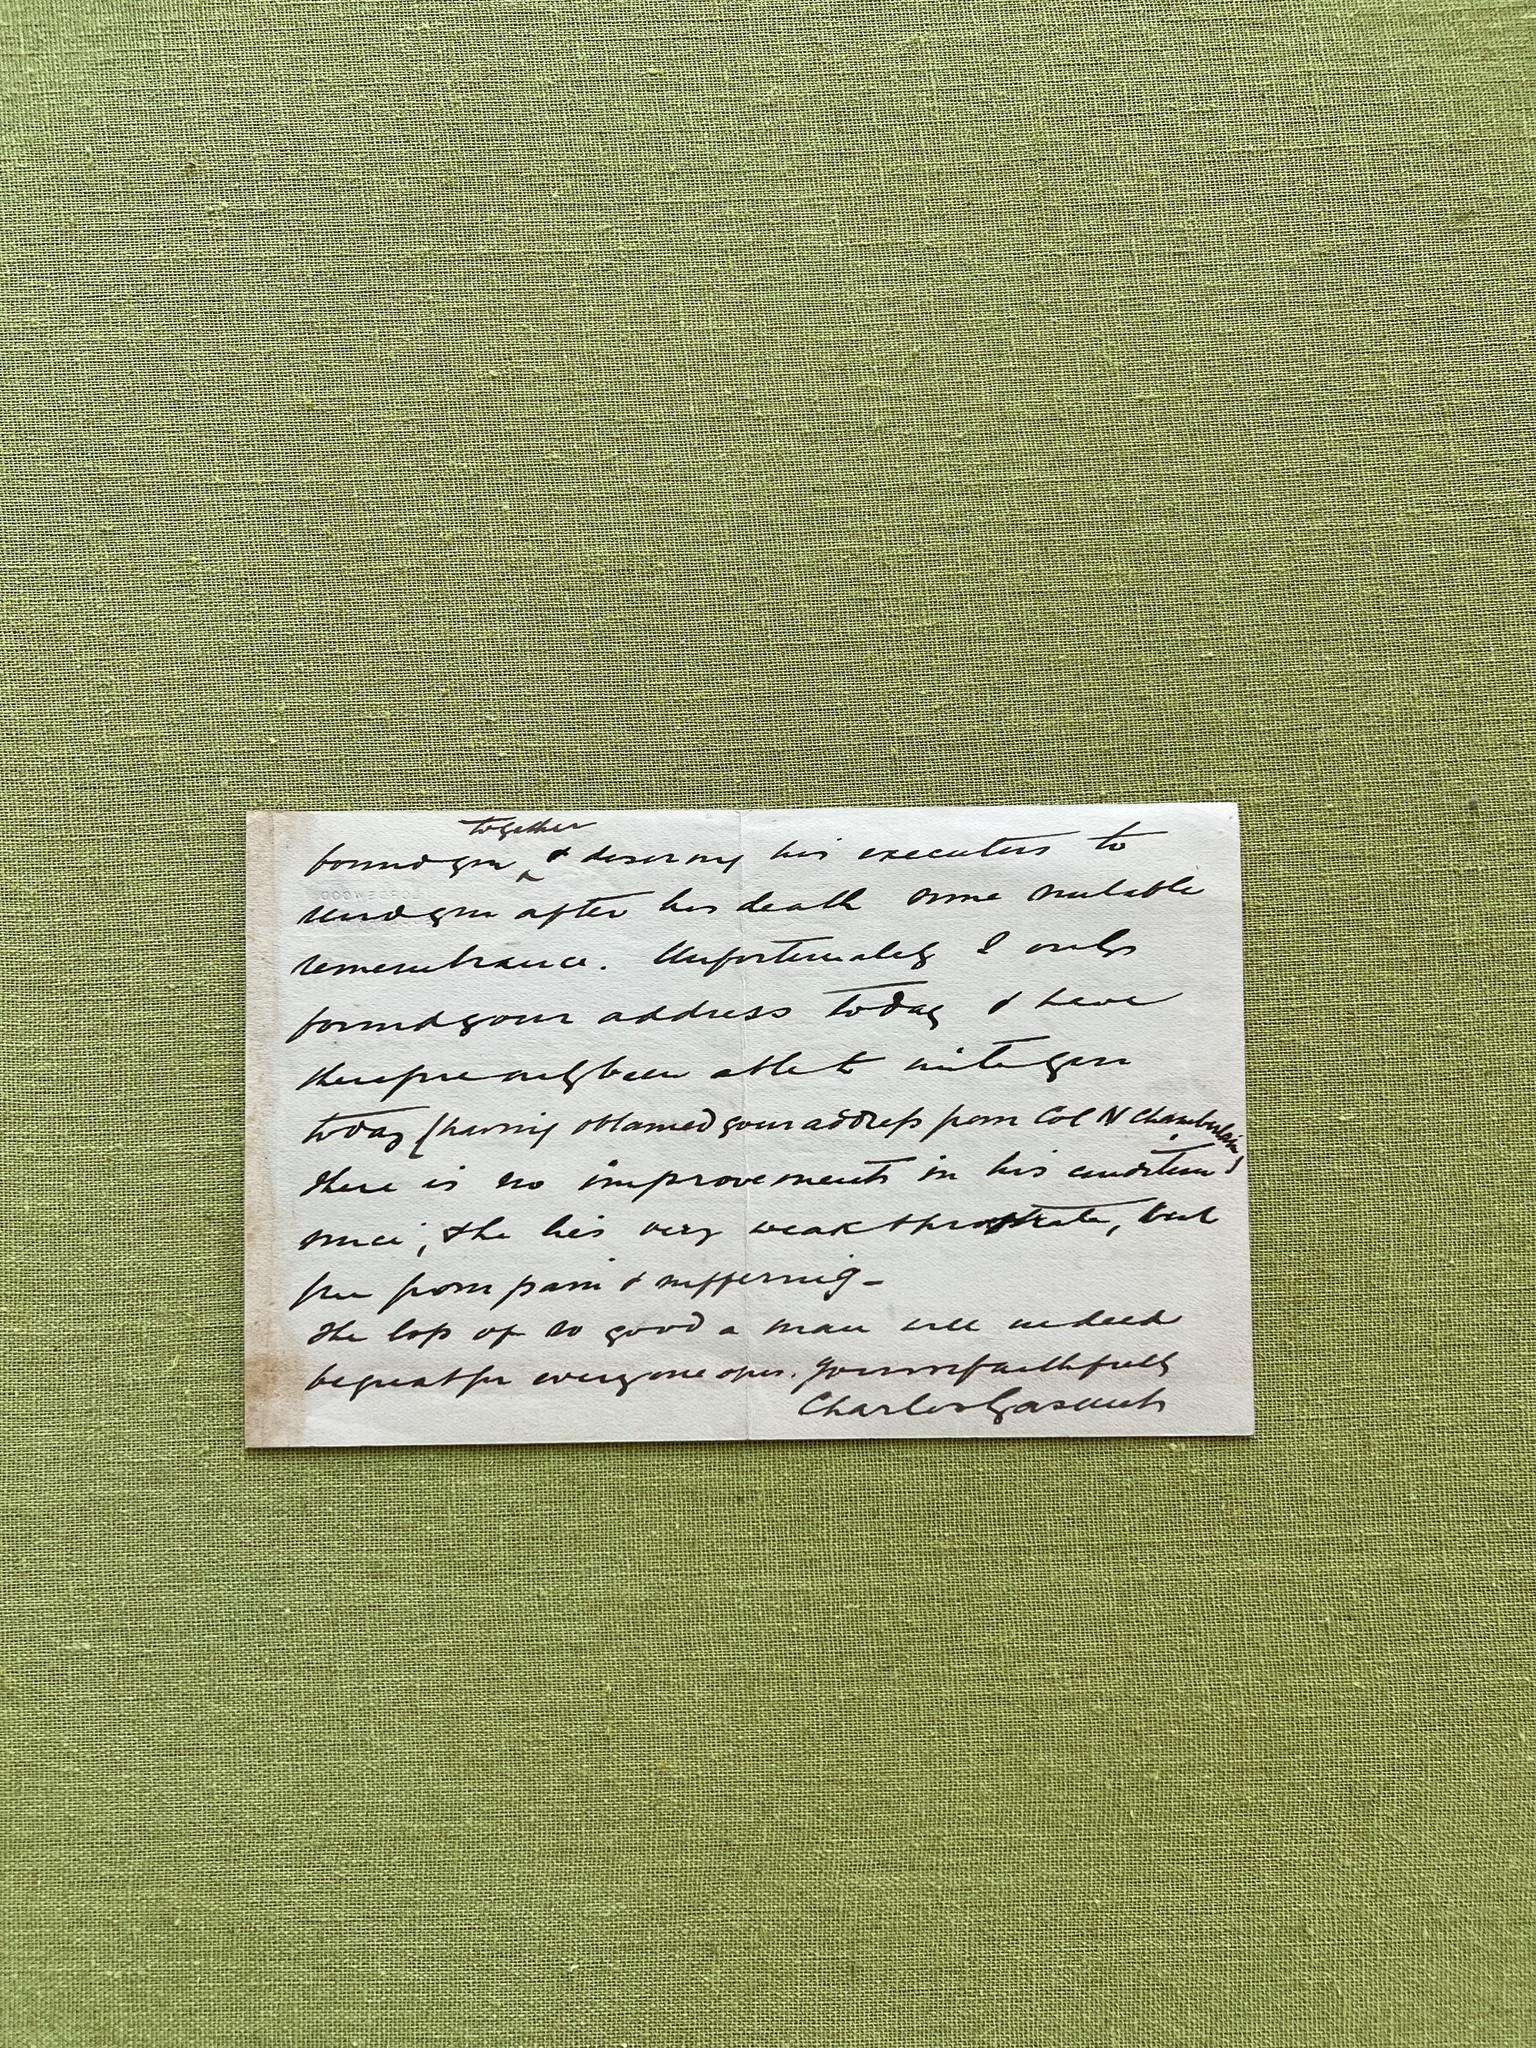 together
bound you & desiring his executors to
send you after his death some suitable
remembrance. Unfortunately I only
found your address today & have
therefore only been able to write you
today (having obtained your address from Col N Chamberlain)
There is no improvement in his condition
since, & he lies very weak & prostrate, but
free from pain & suffering -
The loss of so good a man will indeed
be great for everyone of us. Yours faithfully
Charles Gasquet